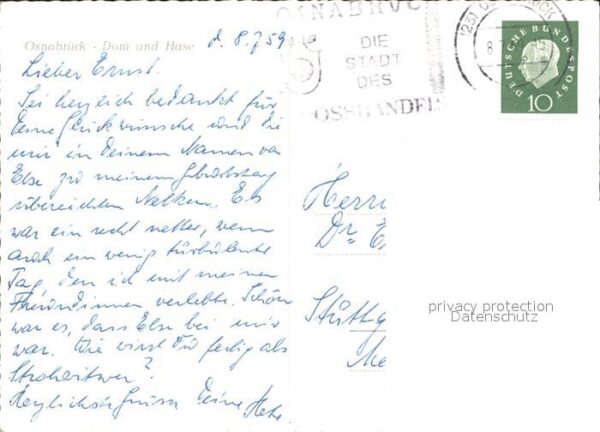 Osnabrück · Dom und Hase
d. 8.7.59
Lieber Ernst.
Sei herzlich bedankt für
Deine Glückwünsche und die
mir in Deinem Namen von
Else zu meinem Geburtstag
überreichten Nelken. Es
war ein recht netter, wenn
auch ein wenig turbulenter
Tag, den ich mit meinen
Freundinnen verlebte. Schön
war es, dass Else bei mir
war. Wie wirst Du fertig als
Strohwitwer?
Herzlichste Grüsse Deine
OSNABRÜC
DIE
STADT
DES
OSSHANDEL
(23)
DEUTSCHE BUNDESPOST
10
Herrn
Dr. E
Stuttg
privacy protection
Datenschutz